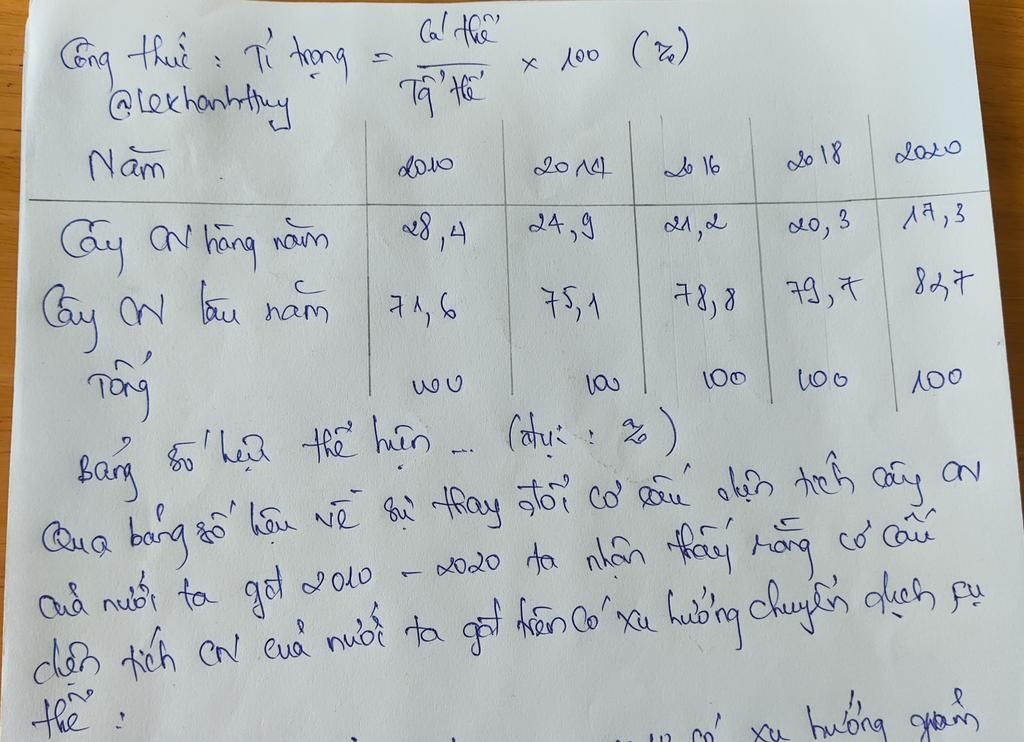 Công thức : Tỉ trọng = Cá thể / Tổ thể × 100 (%)
@Lekhanhthuy
Năm 2010 2014 2016 2018 2020
Cây CN hàng năm 28,4 24,9 21,2 20,3 17,3
Cây CN lâu năm 71,6 75,1 78,8 79,7 82,7
Tổng 100 100 100 100 100
Bảng số liệu thể hiện ... (đv: : %)
Qua bảng số liệu về sự thay đổi cơ cấu diện tích cây CN
của nước ta gđ 2010 - 2020 ta nhận thấy rằng cơ cấu
diện tích CN của nước ta gđ trên có xu hướng chuyển dịch cụ
thể :
có xu hướng giảm